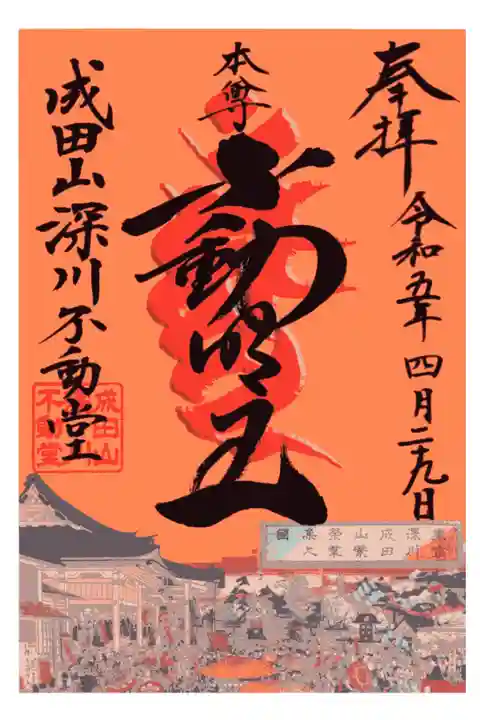 奉拝
令和五年四月二十九日
本尊
不動明王
成田山深川不動堂
成田山
不動堂
深川
成田